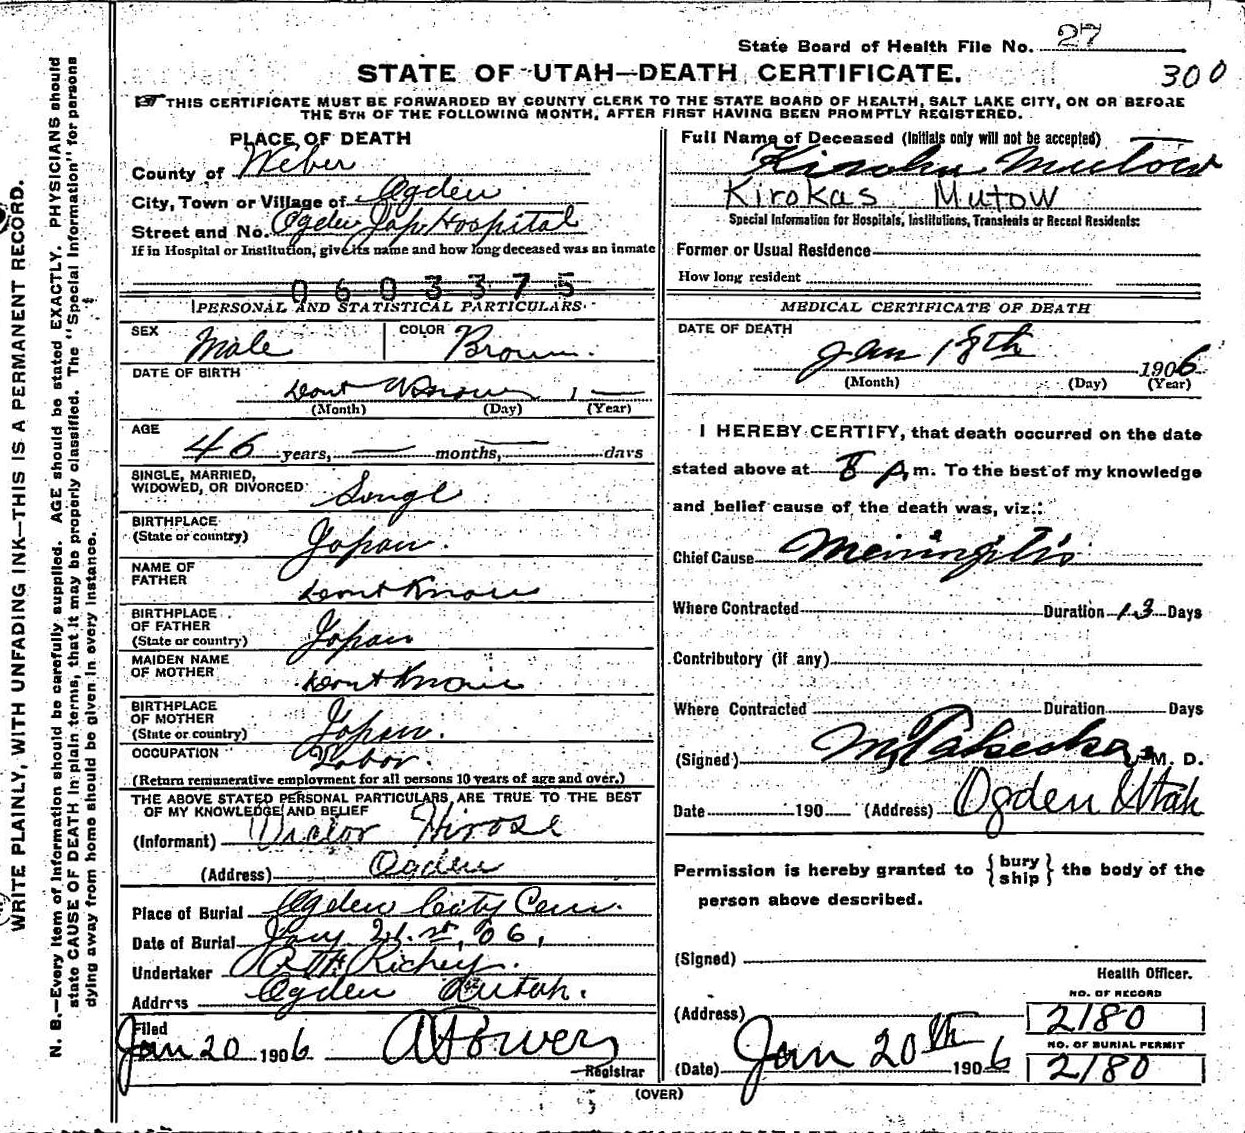 State Board of Health File No. 27
STATE OF UTAH—DEATH CERTIFICATE.
300
THIS CERTIFICATE MUST BE FORWARDED BY COUNTY CLERK TO THE STATE BOARD OF HEALTH, SALT LAKE CITY, ON OR BEFORE
THE 5TH OF THE FOLLOWING MONTH, AFTER FIRST HAVING BEEN PROMPTLY REGISTERED.
WRITE PLAINLY, WITH UNFADING INK—THIS IS A PERMANENT RECORD.
N. B.—Every item of information should be carefully supplied. AGE should be stated EXACTLY. PHYSICIANS should
state CAUSE OF DEATH in plain terms, that it may be properly classified. The "Special Information" for persons
dying away from home should be given in every instance.
PLACE OF DEATH
County of Weber
City, Town or Village of Ogden
Street and No. Ogden Jap Hospital
If in Hospital or Institution, give its name and how long deceased was an inmate
0603375
PERSONAL AND STATISTICAL PARTICULARS
SEX Male COLOR Brown.
DATE OF BIRTH
dont Know 1 —
(Month) (Day) (Year)
AGE
46 years, — months, — days
SINGLE, MARRIED,
WIDOWED, OR DIVORCED Singl
BIRTHPLACE
(State or country) Japan.
NAME OF
FATHER dont Know
BIRTHPLACE
OF FATHER
(State or country) Japan
MAIDEN NAME
OF MOTHER dont Know
BIRTHPLACE
OF MOTHER
(State or country) Japan.
OCCUPATION Labor.
(Return remunerative employment for all persons 10 years of age and over.)
THE ABOVE STATED PERSONAL PARTICULARS ARE TRUE TO THE BEST
OF MY KNOWLEDGE AND BELIEF
(Informant) Victor Hirose
(Address) Ogden
Place of Burial Ogden City Cem.
Date of Burial Jany. 21.st, 06,
Undertaker Richey.
Address Ogden Utah.
Filed
Jan 20 1906
Registrar
Full Name of Deceased (Initials only will not be accepted)
Kiroku Mutow
Kirokas Mutow
Special Information for Hospitals, Institutions, Transients or Recent Residents:
Former or Usual Residence
How long resident
MEDICAL CERTIFICATE OF DEATH
DATE OF DEATH
Jan 18th 1906
(Month) (Day) (Year)
I HEREBY CERTIFY, that death occurred on the date
stated above at 8 P.m. To the best of my knowledge
and belief cause of the death was, viz:
Chief Cause Meiningitis
Where Contracted Duration 13 Days
Contributory (if any)
Where Contracted Duration Days
(Signed) M. D.
Date 190 (Address) Ogden Utah
Permission is hereby granted to { bury ship } the body of the
person above described.
(Signed)
Health Officer.
(Address)
NO. OF RECORD
2180
NO. OF BURIAL PERMIT
2180
(Date) Jan 20th 1906
(OVER)